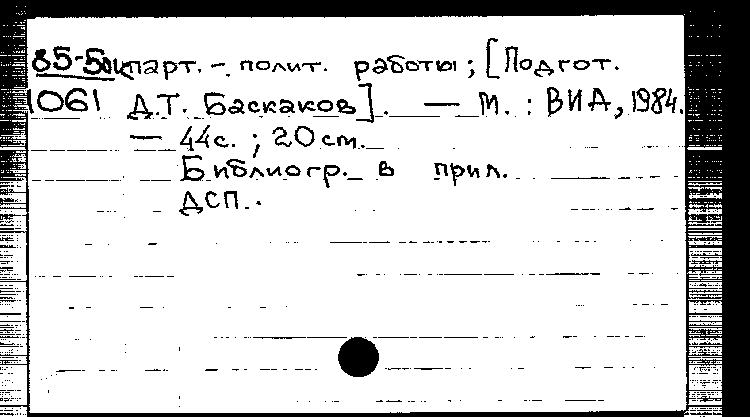 85-5 парт. - полит. работы ; [Подгот.
1061 Д.Т. Баскаков]. — М. : ВИА, 1984.
— 44с. ; 20 см.
Библиогр. в прил.
ДСП.